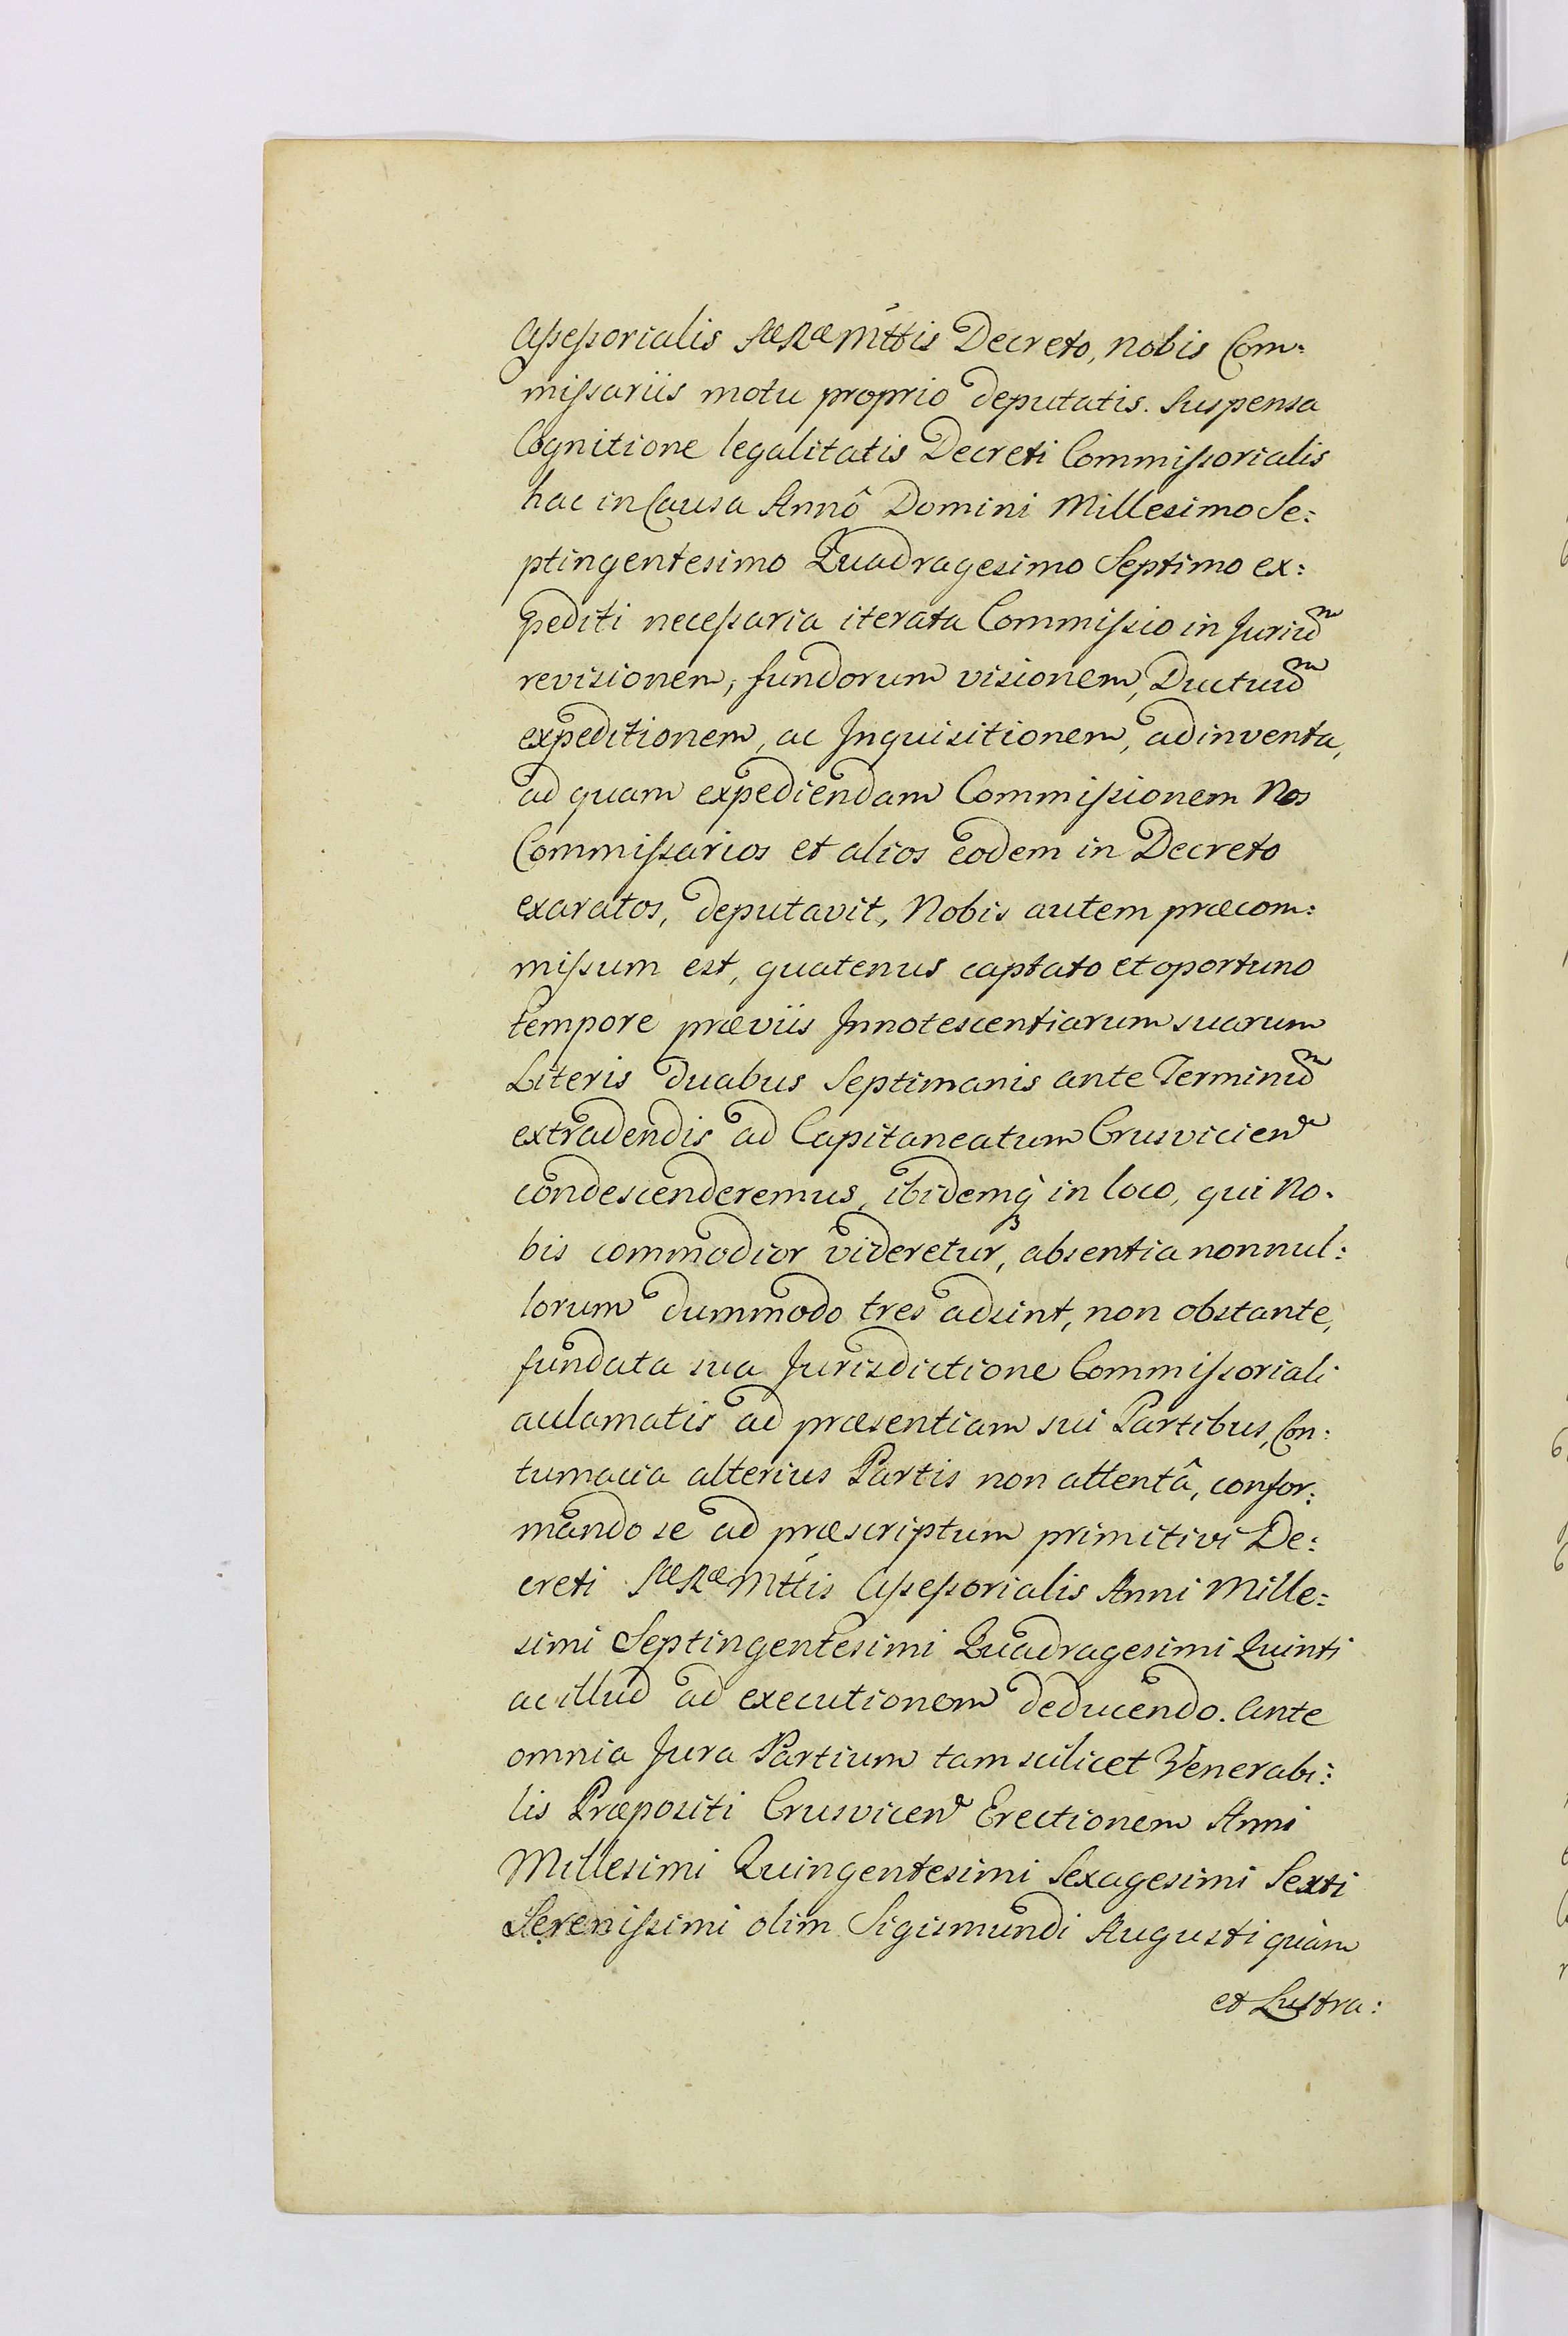 Assessorialis Sæ Ræ Mttis Decreto, nobis Com:
missariis motu proprio deputatis. Suspensa
Cognitione legalitatis Decreti Commissorialis
hac in Causa Annô Domini Millesimo Se:
ptingentesimo Quadragesimo Septimo ex:
pediti necessaria iterata Commissio in Juriũm
revisionem, fundorum visionem, Ductuũm
expeditionem, ac Inquisitionem, adinventa,
ad quam expediendam Commissionem Nos
Commissarios et alios eodem in Decreto
exaratos, deputavit, Nobis autem præcom:
missum est, quatenus captato et oportuno
tempore præviis Innotescentiarum suarum
Literis duabus Septimanis ante Terminũm
extradendis ad Capitaneatum Crusvicien
condescenderemus, ibidemq̃ in loco, qui No:
bis commodior videretur, absentia nonnul:
lorum dummodo tres adsint, non obstante,
fundata sua Jurisdictione Commissoriali
acclamatis ad præsentiam sui Partibus, Con:
tumacia alterius Partis non attentâ, confor:
mando se ad præscriptum primitivi De:
creti Sæ Ræ Mttis Assessorialis Anni Mille:
simi Septingentesimi Quadragesimi Quinti
ac illud ad executionem deducendo. Ante
omnia Jura Partium tam scilicet Venerabi:
lis Præpositi Crusvicen Erectionem Anni
Millesimi Quingentesimi Sexagesimi Sexti
Serenissimi olim Sigismundi Augusti quàm
et Lustra: